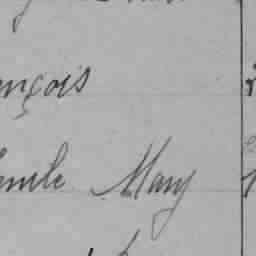 ançois
Emile Mary